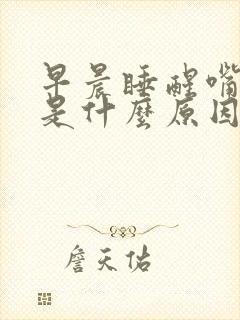 早晨睡醒嘴
是什麼原因
詹天佑